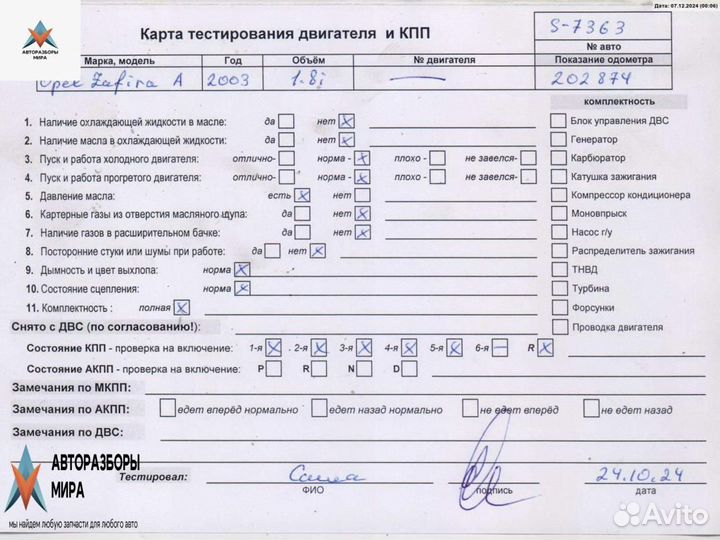 Дата: 07.12.2024 (00:06)
АВТОРАЗБОРЫ
МИРА
Карта тестирования двигателя и КПП
S-7363
№ авто
Марка, модель Год Объём № двигателя Показание одометра
Opel Zafira A 2003 1.8i — 202874
комплектность
1. Наличие охлаждающей жидкости в масле: да нет X
Блок управления ДВС
2. Наличие масла в охлаждающей жидкости: да нет X
Генератор
3. Пуск и работа холодного двигателя: отлично- норма - X плохо - не завелся-
Карбюратор
4. Пуск и работа прогретого двигателя: отлично- норма - X плохо - не завелсь-
Катушка зажигания
5. Давление масла: есть X нет
Компрессор кондиционера
6. Картерные газы из отверстия масляного щупа: да нет X
Моновпрыск
7. Наличие газов в расширительном бачке: да нет X
Насос г/у
8. Посторонние стуки или шумы при работе: да нет X
Распределитель зажигания
9. Дымность и цвет выхлопа: норма X
ТНВД
10. Состояние сцепления: норма X
Турбина
11. Комплектность : полная X
Форсунки
Снято с ДВС (по согласованию!):
Проводка двигателя
Состояние КПП - проверка на включение: 1-я X 2-я X 3-я X 4-я X 5-я X 6-я — R X
Состояние АКПП - проверка на включение: P R N D
Замечания по МКПП:
Замечания по АКПП: едет вперёд нормально едет назад нормально не едет вперёд не едет назад
Замечания по ДВС:
АВТОРАЗБОРЫ
МИРА
мы найдем любую запчасти для любого авто
Тестировал: Саша 24.10.24
ФИО подпись дата
Avito